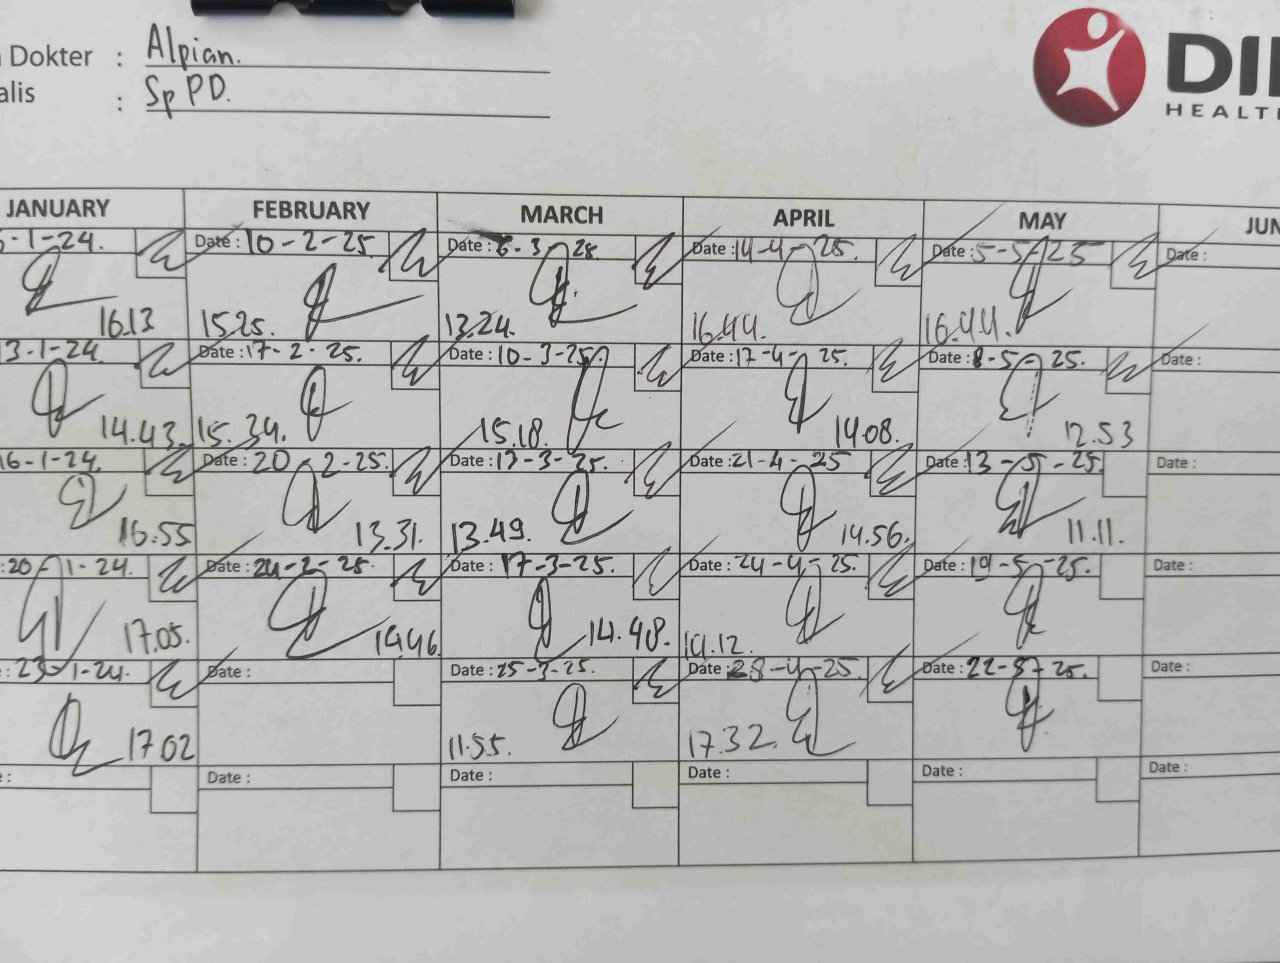 Dokter : Alpian.
alis : Sp PD.
DI
HEALT
JANUARY FEBRUARY MARCH APRIL MAY JUN
-1-24. Date : 10-2-25. Date : 6-3 28 Date : 14-4-25. Date : 5-5-25 Date :
16.13 15.25. 13.24. 16.44. 16.44.
3-1-24 Date : 17-2-25. Date : 10-3-25. Date : 17-4-25. Date : 8-5-25. Date :
14.43. 15.34. 15.18. 14.08. 12.53
16-1-24. Date : 20-2-25. Date : 13-3-25. Date : 21-4-25 Date : 13-5-25. Date :
16.55 13.31. 13.49. 14.56. 11.11.
: 20-1-24. Date : 24-2-25. Date : 17-3-25. Date : 24-4-25. Date : 19-5-25. Date :
17.05. 14.46. 14.48. 14.12.
: 23-1-24. Date : Date : 25-3-25. Date : 28-4-25. Date : 22-5-25. Date :
17.02 11.55. 17.32.
: Date : Date : Date : Date : Date :